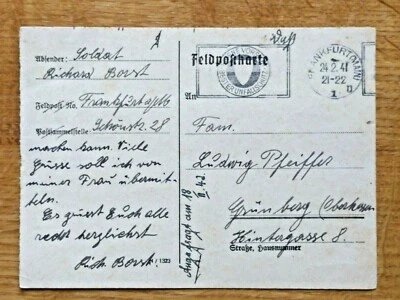 Absender: Soldat
Richard Borst
Feldpost No. Frankfurt a/M
Postsammelstelle Schönstr. 28
machen kann. Viele
Grüsse soll ich von
meiner Frau übermit-
teln.
Es grüsst Euch alle
recht herzlichst
Rich. Borst.
Feldpostkarte
FRANKFURT (MAIN)
24.2.41
21-22
1 n
An
Fam.
Ludwig Pfeiffer
Grünberg (Oberhessen
Hintergasse 8.
Straße, Hausnummer